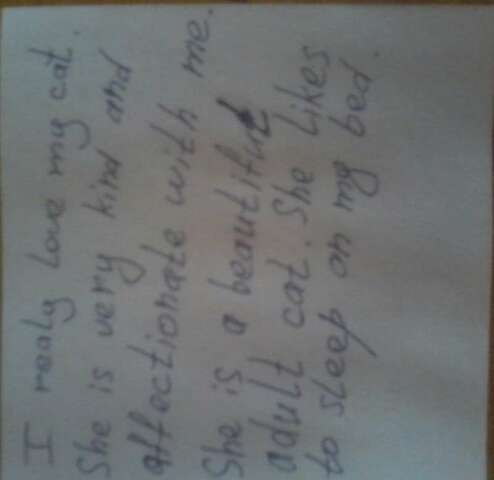 I realy love my cat.
She is very kind and
affectionate with me.
She is a beautiful
adult cat. She likes
to sleep on my bed.